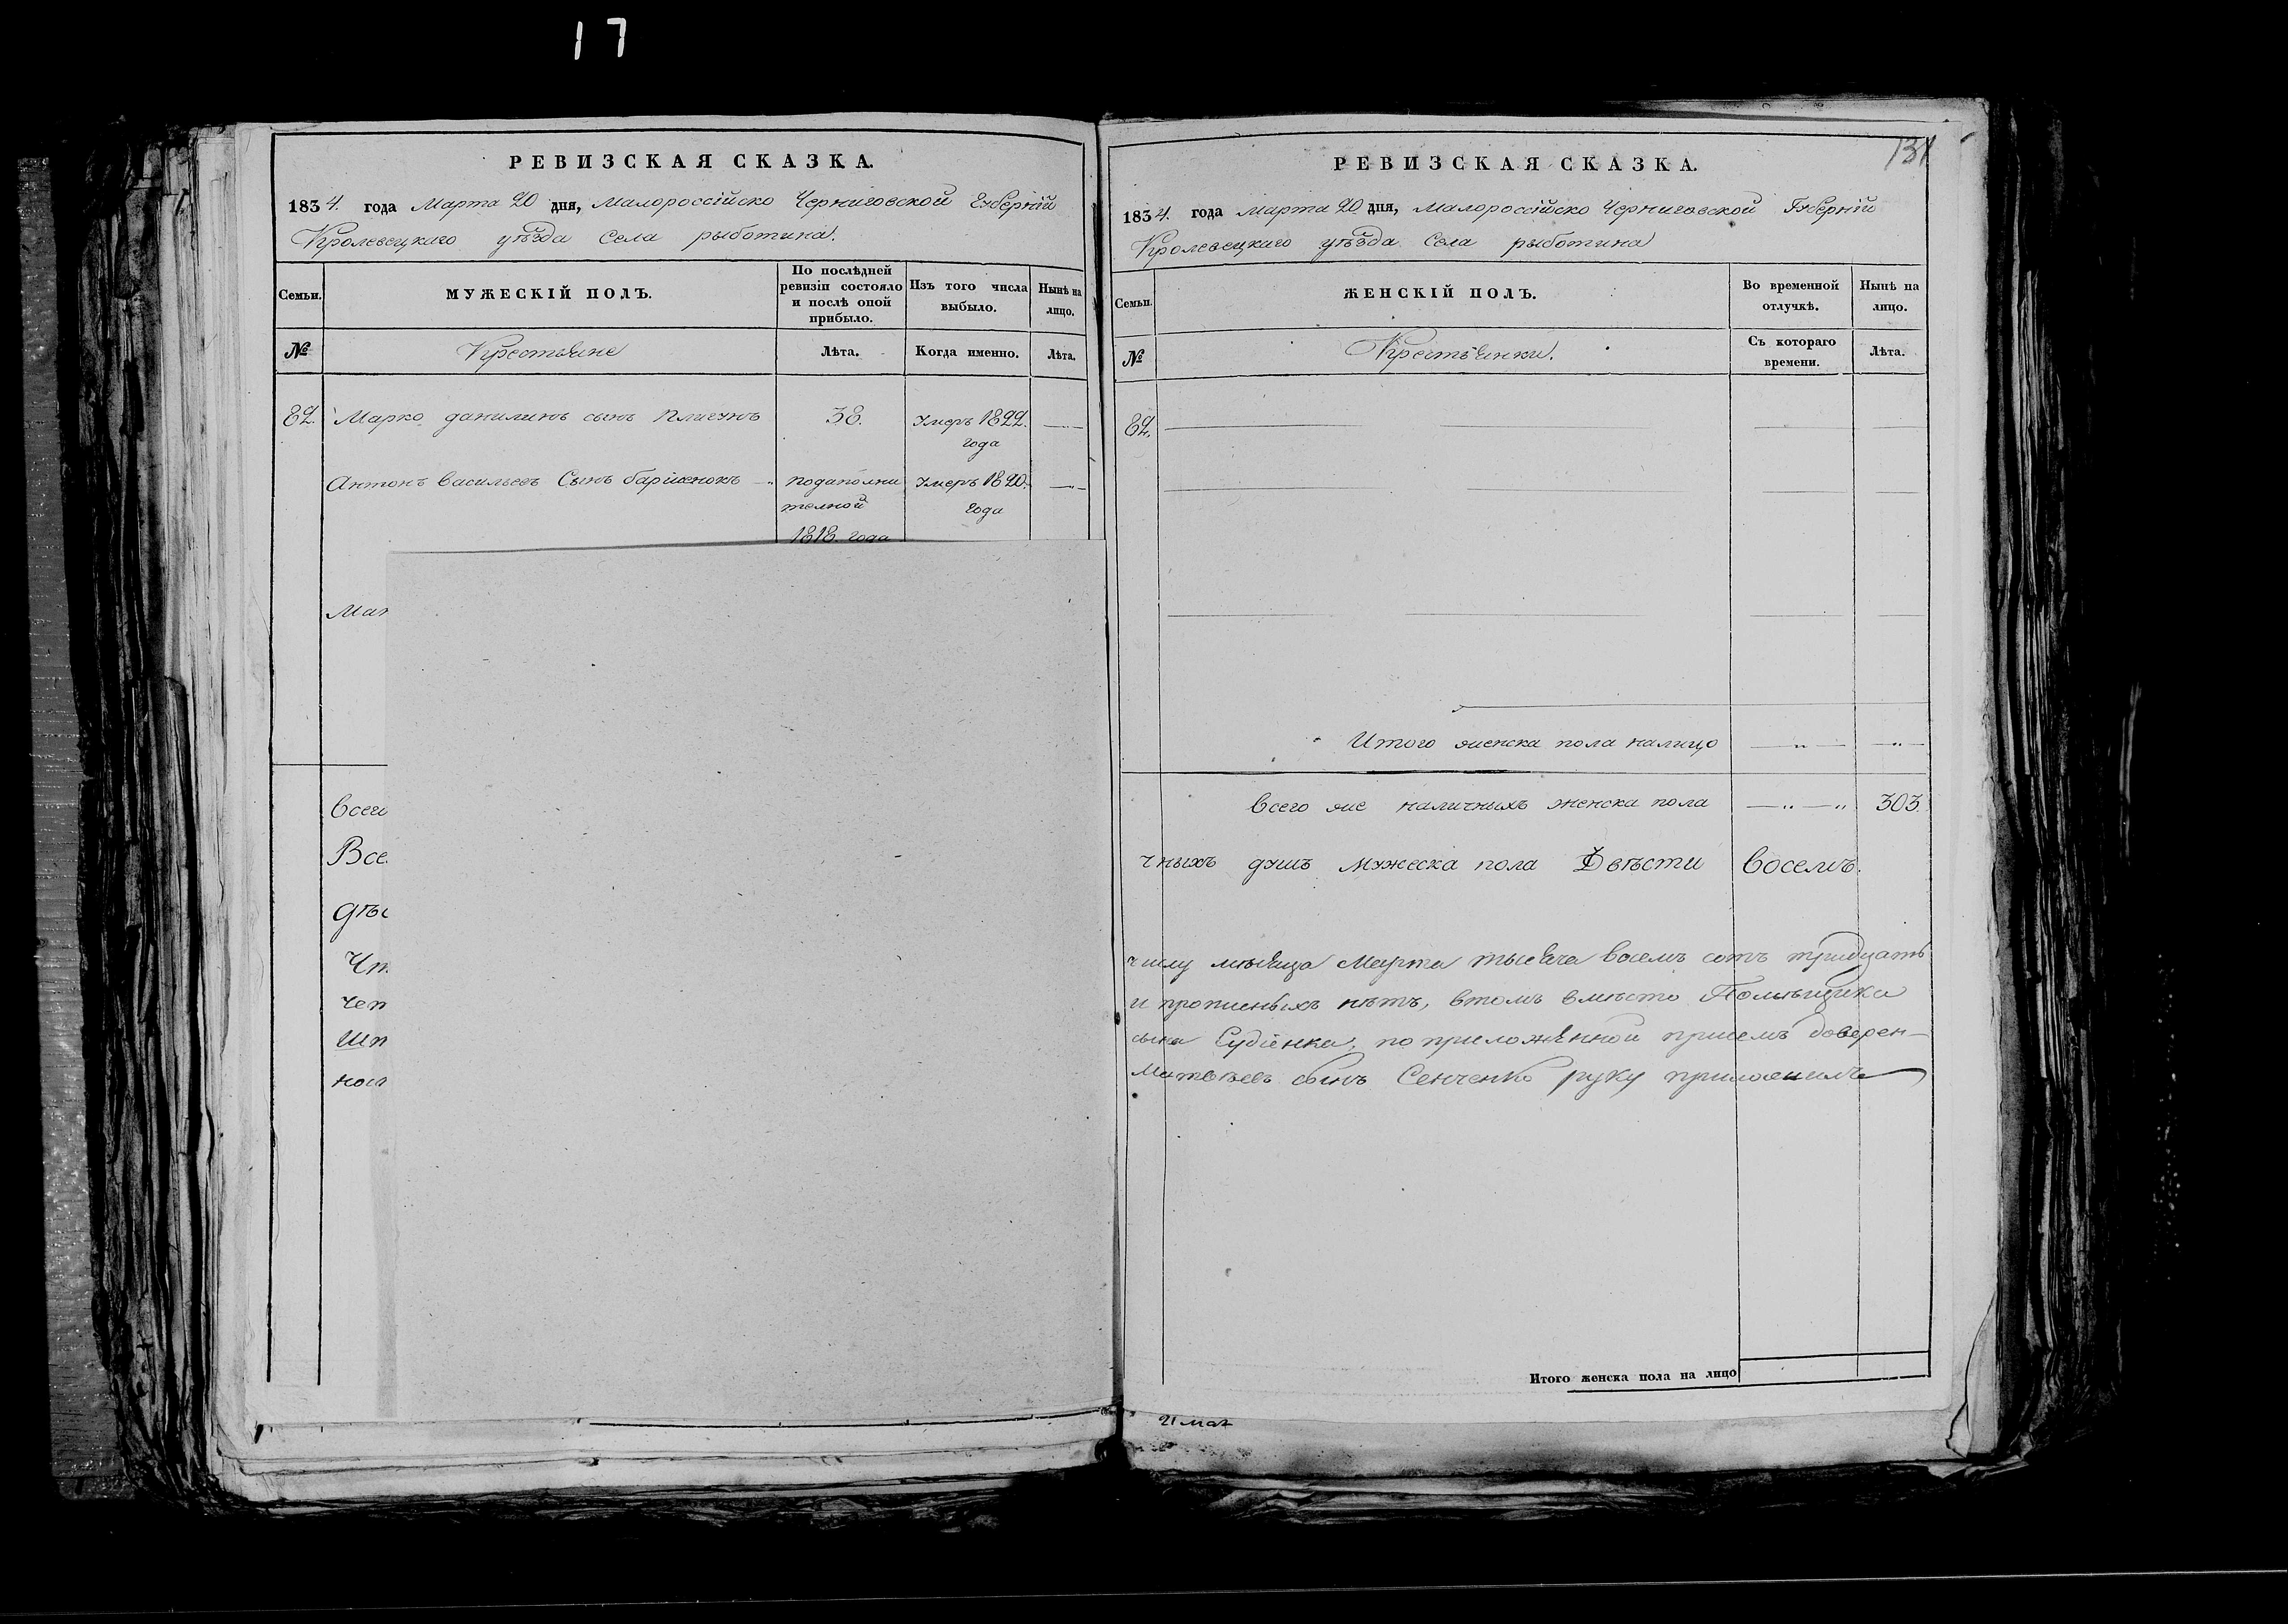 17
РЕВИЗСКАЯ СКАЗКА.
1834. года Марта 20 дня, Малороссійско Черниговской Губерніи
Кролевецкаго уѣзда Села рыботина.
Семьи.
МУЖЕСКІЙ ПОЛЪ.
По послѣдней ревизіи состояло и послѣ оной прибыло.
Изъ того числа выбыло.
Нынѣ на лицо.
№
Крестьяне
Лѣта.
Когда именно.
Лѣта.
82. Марко данилинъ сынъ 38. Умеръ 1822. года
Антонъ васильевъ Сынъ Умеръ 1820. года
1818. года
Мат
Всег
Все
дѣс
Чт
чет
Шт
ност
131
РЕВИЗСКАЯ СКАЗКА.
1834. года марта 20 дня, Малороссійско Черниговской Губерніи
Кролевецкаго уѣзда Села рыботина
Семьи.
ЖЕНСКІЙ ПОЛЪ.
Во временной отлучкѣ.
Нынѣ на лицо.
№
Крестьянки.
Съ котораго времени.
Лѣта.
82.
Итого женска пола налицо
Всего же наличныхъ женска пола 303.
чныхъ душъ мужеска пола Двѣсти Восемъ.
числу мѣсяца Марта тысяча восемъ сотъ тридцать
и прописныхъ нѣтъ, втомъ вмѣсто Помѣщика
сына Судіенка, поприложенной присемъ доверен-
Матвѣевъ сынъ Сенченко руку приложилъ
Итого женска пола на лицо